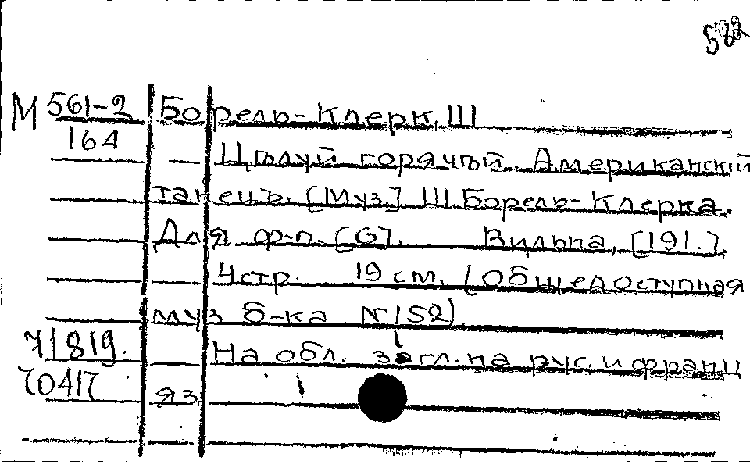 582
М 561-2 Борель-Клерк, Ш
164
— Цѣлуй горячѣй. Американскій
танецъ. [Муз.] Ш. Борель-Клерка.
Для ф-п. [G]. Вильна, [191.].
4 стр. 19 см. (Общедоступная
муз б-ка N 152)
71819. На обл. загл. на рус. и франц
70417 яз